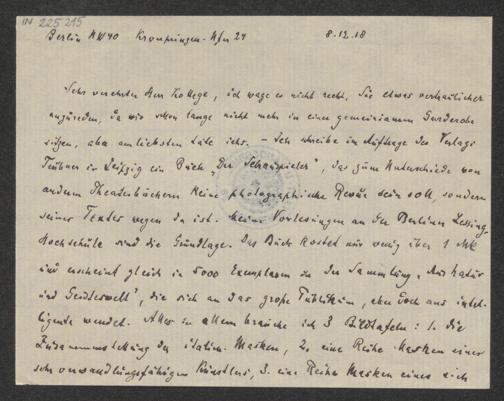 IN 225215
Berlin NW40 Kronprinzen-Ufer 24 8.12.18
Sehr verehrter Herr Kollege, ich wage es nicht recht, Sie etwas vertraulicher
anzureden, da wir schon lange nicht mehr in einer gemeinsamen Garderobe
sitzen, aber am liebsten täte ichs. – Ich schreibe im Auftrage des Verlags
Teubner in Leipzig ein Buch „Der Schauspieler", das zum Unterschiede von
andern Theaterbüchern keine photographische Revue sein soll, sondern
seiner Texte wegen da ist. Meine Vorlesungen an der Berliner Lessing
Hochschule sind die Grundlage. Das Buch kostet nur wenig über 1 Mk
und erscheint gleich in 5000 Exemplaren in der Sammlung „Aus Natur
und Geisteswelt", die sich an das große Publikum, aber doch ans intel-
ligente wendet. Alles in allem brauche ich 3 Bildtafeln: 1. die
Zusammenstellung der italien. Masken, 2. eine Reihe Masken eines
sehr verwandlungsfähigen Künstlers, 3. eine Reihe Masken eines